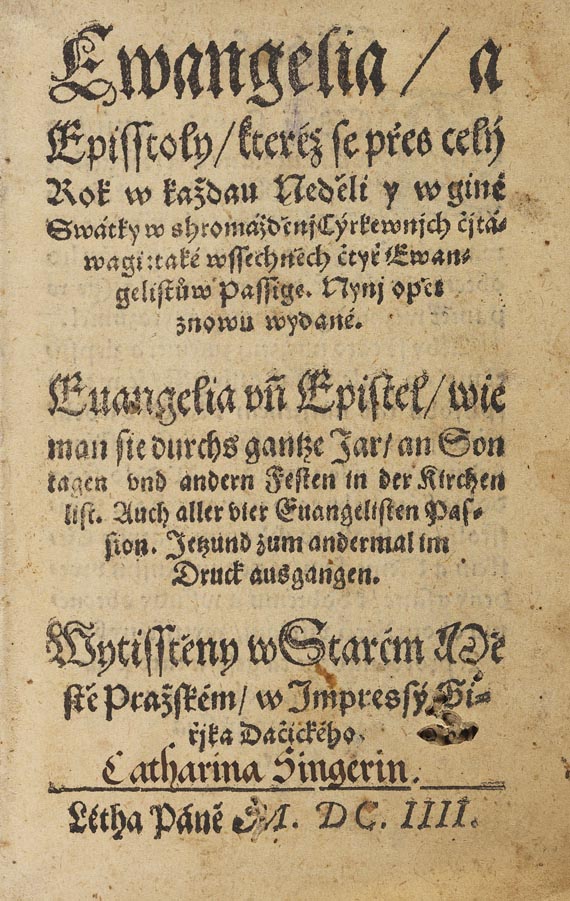 Ewangelia / a
Episstoly / kteréž se přes celý
Rok w každau Neděli y w giné
Swátky w shromážděnj Cýrkewnjch čjtá-
wagi: také wssechněch čtyř Ewan-
gelistůw Passige. Nynj opět
znowu wydané.
Euangelia vñ Epistel / wie
man sie durchs gantze Jar / an Son
tagen vnd andern Festen in der Kirchen
list. Auch aller vier Euangelisten Pas-
sion. Jetzund zum andermal im
Druck ausgangen.
Wytisstěny w Starém Mě
stě Pražském / w Impressý Gi-
řjka Dačického.
Catharina Singerin.
Létha Páně M. DC. IIII.